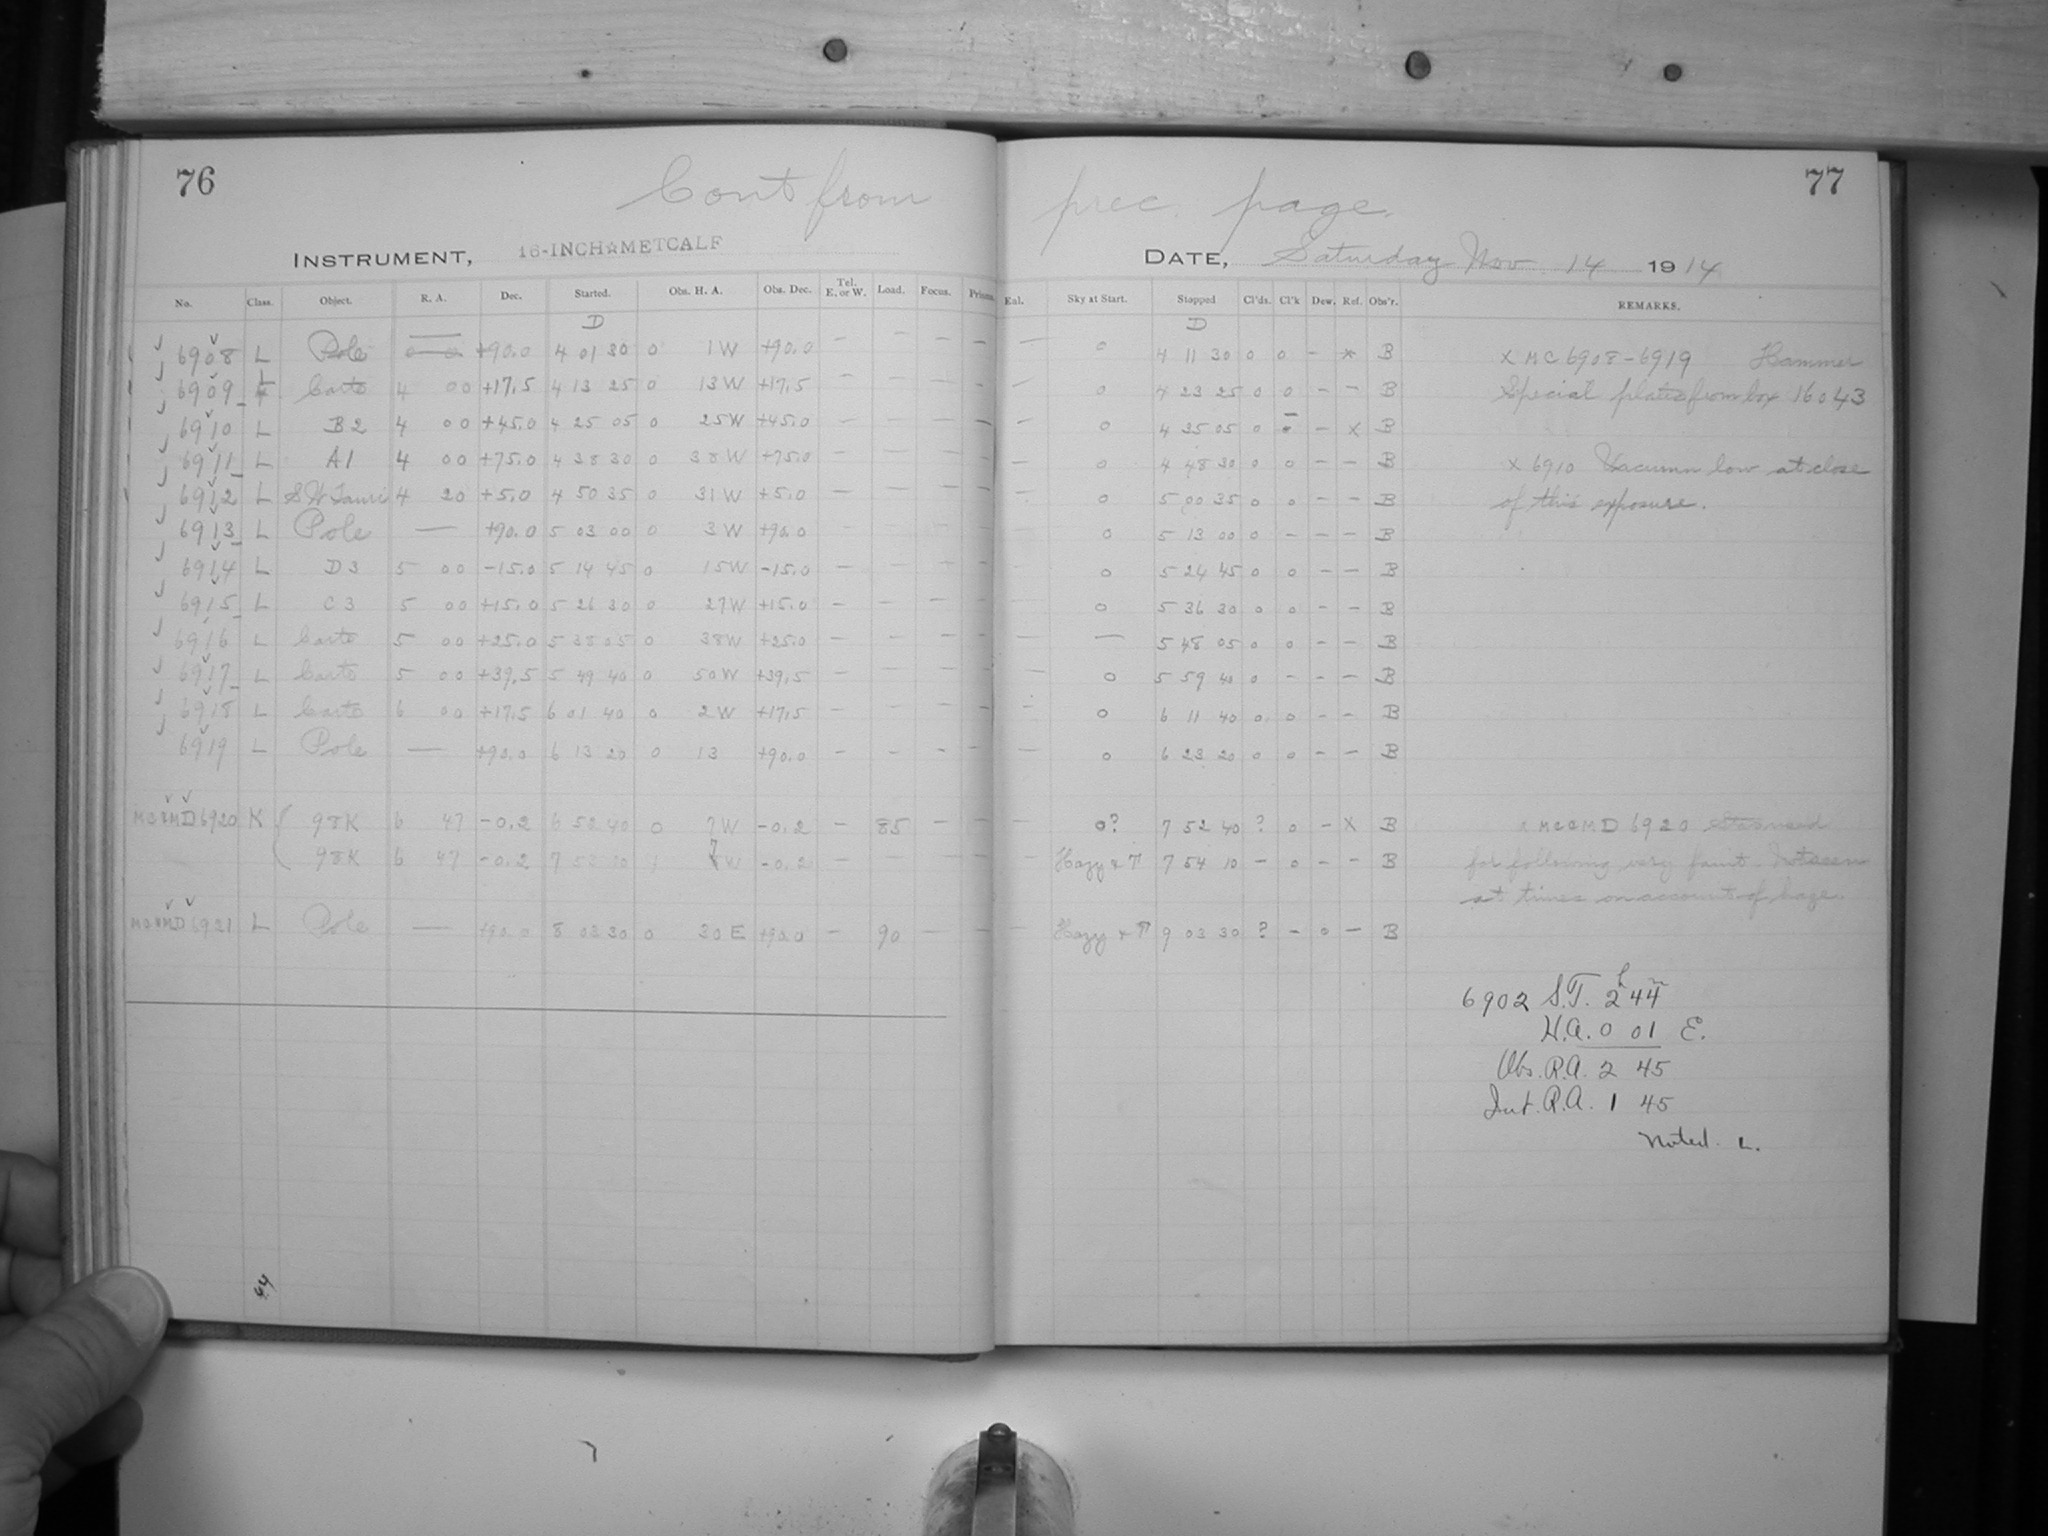 76
Cont from prec. page.
77
INSTRUMENT, 16-INCH☆METCALF DATE, Saturday Nov 14 1914
No. Class. Object. R. A. Dec. Started. Obs. H. A. Obs. Dec. Tel. E. or W. Load. Focus. Prisms. Eal. Sky at Start. Stopped Cl'ds. Cl'k Dew. Ref. Obs'r. REMARKS.
D D
6908 L Pole +90.0 4 01 30 0 1 W +90.0 — — — — — 0 4 11 30 0 0 - * B X MC 6908-6919 Hammer
6909 L Carte 4 00 +17.5 4 13 25 0 13 W +17.5 — — — — — 0 4 23 25 0 0 - - B Special plates from box 16043
6910 L B2 4 00 +45.0 4 25 05 0 25 W +45.0 — — — — — 0 4 35 05 0 - - X B
6911 L A1 4 00 +75.0 4 38 30 0 38 W +75.0 — — — — — 0 4 48 30 0 0 - - B X 6910 Vacumn low at close
6912 L SW Tauri 4 20 +5.0 4 50 35 0 31 W +5.0 — — — — — 0 5 00 35 0 0 - - B of this exposure.
6913 L Pole — +90.0 5 03 00 0 3 W +90.0 — — — — — 0 5 13 00 0 - - - B
6914 L D3 5 00 -15.0 5 14 45 0 15 W -15.0 — — — — — 0 5 24 45 0 0 - - B
6915 L C3 5 00 +15.0 5 26 30 0 27 W +15.0 — — — — — 0 5 36 30 0 0 - - B
6916 L Carte 5 00 +25.0 5 38 05 0 38 W +25.0 — — — — — — 5 48 05 0 0 - - B
6917 L Carte 5 00 +39.5 5 49 40 0 50 W +39.5 — — — — — 0 5 59 40 0 - - - B
6918 L Carte 6 00 +17.5 6 01 40 0 2 W +17.5 — — — — — 0 6 11 40 0 0 - - B
6919 L Pole — +90.0 6 13 20 0 13 +90.0 — — — — — 0 6 23 20 0 0 - - B
MC & MD 6920 K 98K 6 47 -0.2 6 52 40 0 7 W -0.2 — 85 — — — 0? 7 52 40 ? 0 - X B X MC & MD 6920 Star used
98K 6 47 -0.2 7 53 10 1 7 W -0.2 — — — — — Hazy & 7 54 10 - 0 - - B for following very faint. Not seen
at times on account of haze.
MC & MD 6921 L Pole — +90.0 8 03 30 0 30 E +90.0 — 90 — — — Hazy & 9 03 30 ? - 0 - B
6902 S.T. 2h 44m
H.A. 0 01 E.
Obs. R.A. 2 45
Int. R.A. 1 45
Noted. L.
44